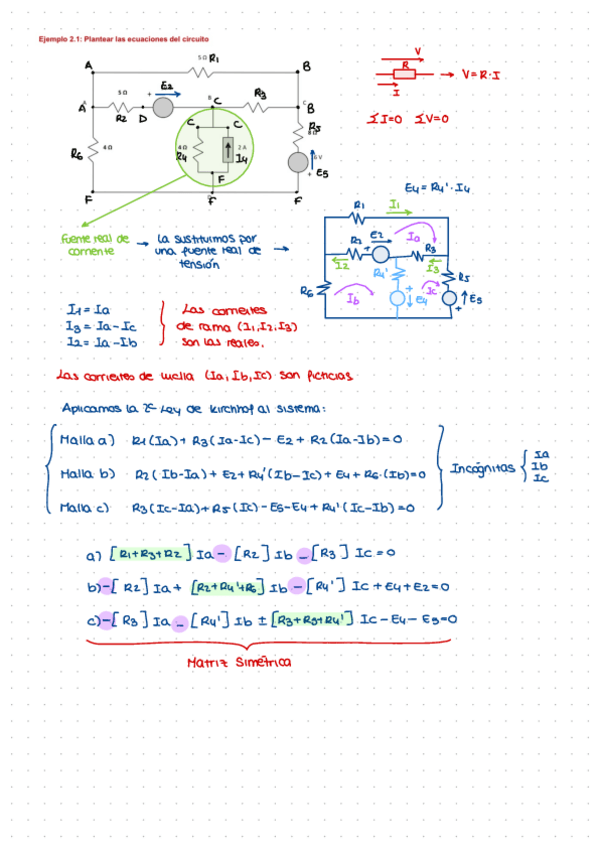 Ejemplo 2.1: Plantear las ecuaciones del circuito
5 Ω R1
A
B
V
R
I
→ V=R·I
ΣI=0 ΣV=0
5 Ω
E2
+
A
R2
D
C
R3
B
R5
C
C
R6
4 Ω
4 Ω
R4
I4
2 A
F
E5
+
F
F
F
E4 = R4'·I4
Fuente real de
corriente
→ la sustituimos por
una fuente real de
tensión →
R1
I1
R2
E2
Ia
R3
I2
R4'
I3
R5
R6
Ib
Ic
E4
E5
+
I1 = Ia
I3 = Ia - Ic
I2 = Ia - Ib
Las corrientes
de rama (I1, I2, I3)
son las reales.
Las corrientes de malla (Ia, Ib, Ic) son ficticias
Aplicamos la 2ª Ley de Kirchhof al sistema:
Malla a) R1(Ia) + R3(Ia-Ic) - E2 + R2(Ia-Ib) = 0
Malla b) R2(Ib-Ia) + E2 + R4'(Ib-Ic) + E4 + R6·(Ib) = 0
Malla c) R3(Ic-Ia) + R5(Ic) - E5 - E4 + R4'(Ic-Ib) = 0
Incógnitas { Ia
Ib
Ic
a) [R1+R3+R2] Ia - [R2] Ib - [R3] Ic = 0
b) - [R2] Ia + [R2+R4'+R6] Ib - [R4'] Ic + E4 + E2 = 0
c) - [R3] Ia - [R4'] Ib ± [R3+R5+R4'] Ic - E4 - E5 = 0
Matriz Simétrica